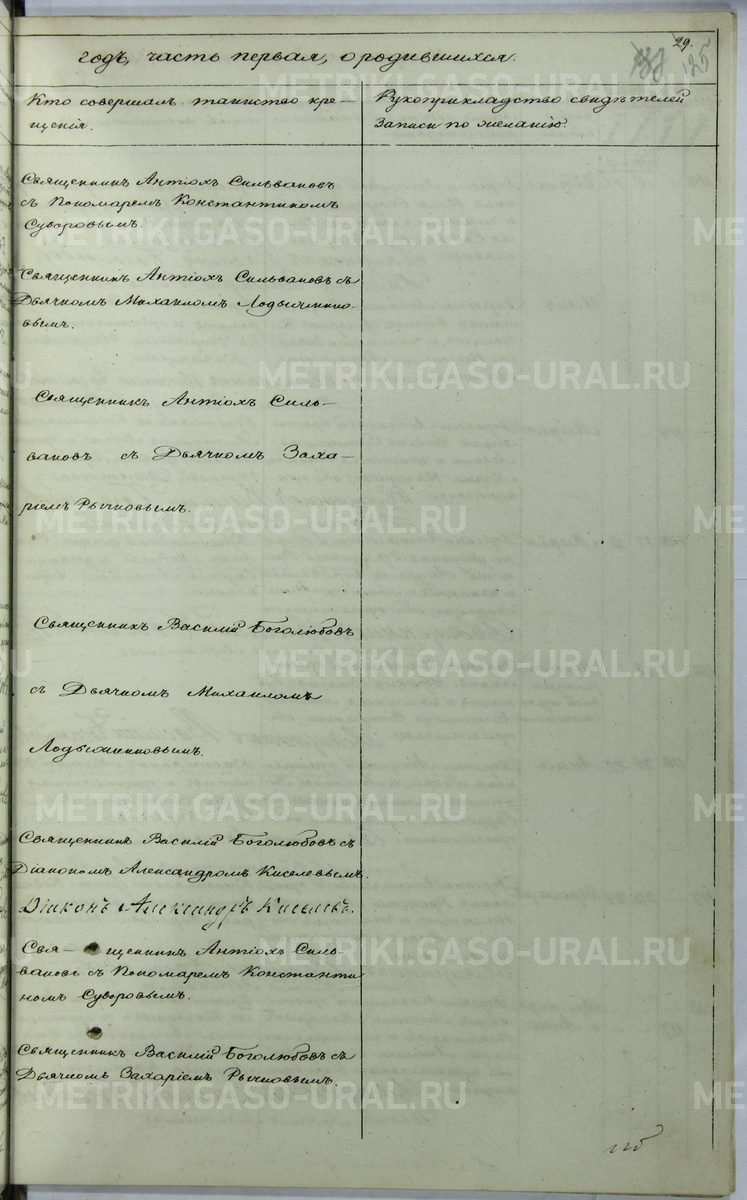 29.
125
годъ, часть первая, о родившихся.
Кто совершалъ таинство кре-
щенія.
Рукоприкладство свидѣтелей
записи по желанію.
Священникъ Антіохъ Сильвановъ
съ Пономаремъ Константиномъ
Суворовымъ.
Священникъ Антіохъ Сильвановъ съ
Дьячкомъ Михаиломъ Лодыженко-
вымъ.
Священникъ Антіохъ Силь-
вановъ съ Дьячкомъ Заха-
ріемъ Рычковымъ.
Священникъ Василій Боголюбовъ
съ Дьячкомъ Михаиломъ
Лодыженковымъ.
Священникъ Василій Боголюбовъ съ
Діакономъ Александромъ Киселевымъ.
Діаконъ Александръ Киселевъ.
Свя- щенникъ Антіохъ Силь-
вановъ съ Пономаремъ Константи
номъ Суворовымъ.
Священникъ Василій Боголюбовъ съ
Дьячкомъ Захаріемъ Рычковымъ.
METRIKI.GASO-URAL.RU
METRIKI.GASO-URAL.RU
METRIKI.GASO-URAL.RU
METRIKI.GASO-URAL.RU
METRIKI.GASO-URAL.RU
METRIKI.GASO-URAL.RU
METRIKI.GASO-URAL.RU
METRIKI.GASO-URAL.RU